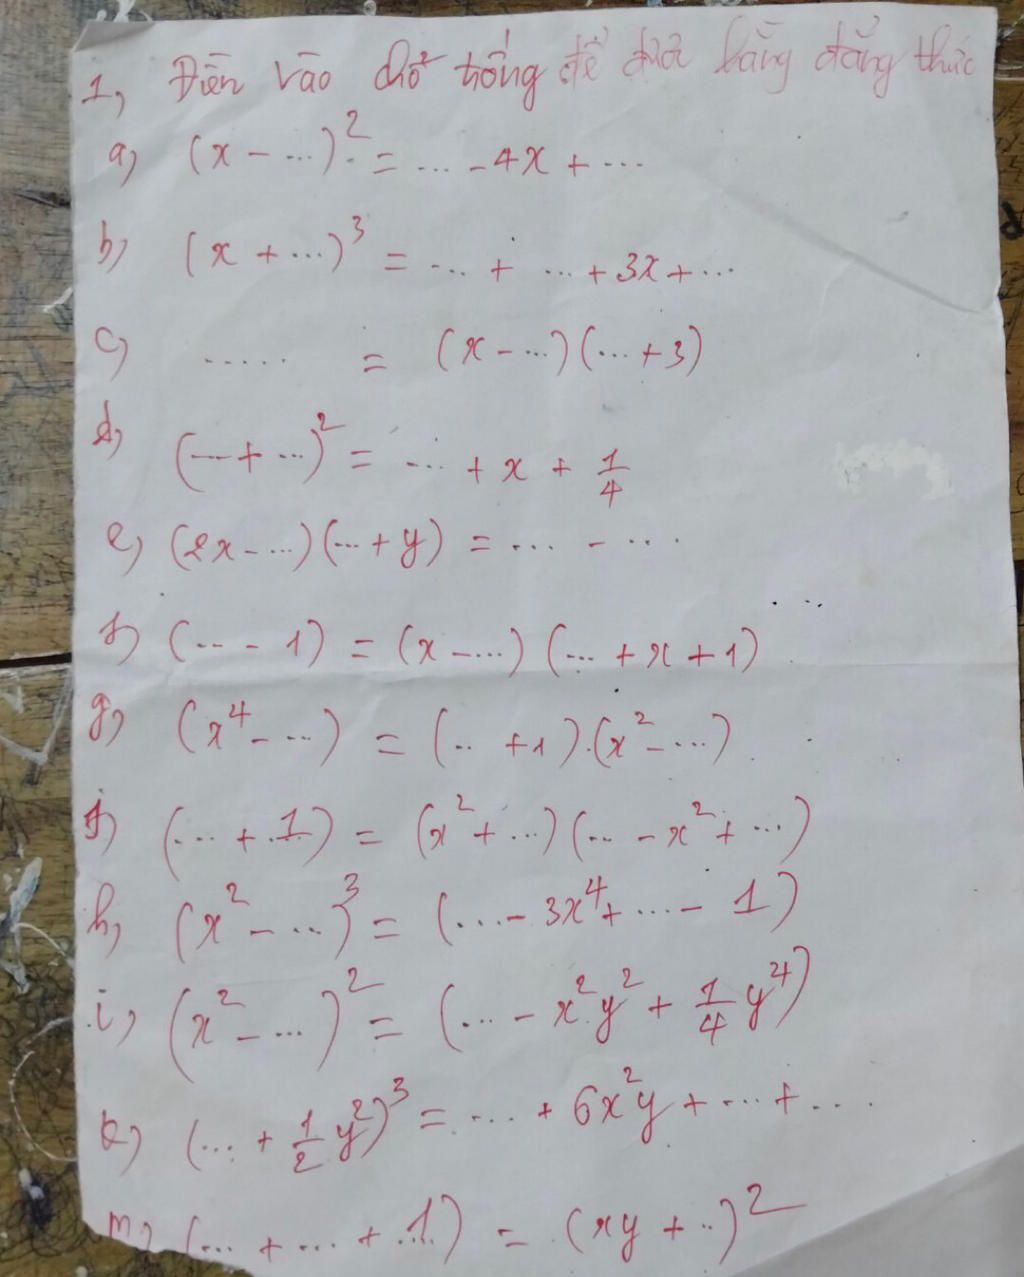 1, Điền vào chỗ trống để đưa hằng đẳng thức
a, (x - ...)² = ... - 4x + ...
b, (x + ...)³ = ... + ... + 3x + ...
c, ..... = (x - ...)(... + 3)
d, (... + ...)² = ... + x + 1/4
e, (2x - ...)(... + y) = ... - ...
f, (... - 1) = (x - ...)(... + x + 1)
g, (x⁴ - ...) = (.. + 1).(x² - ...)
j, (... + 1) = (x² + ...)(... - x² + ...)
h, (x² - ...)³ = (... - 3x⁴ + ... - 1)
i, (x² - ...)² = (... - x²y² + 1/4 y⁴)
k, (... + 1/2 y²)³ = ... + 6x²y + ... + ...
m, (... + ... + 1) = (xy + ..)²